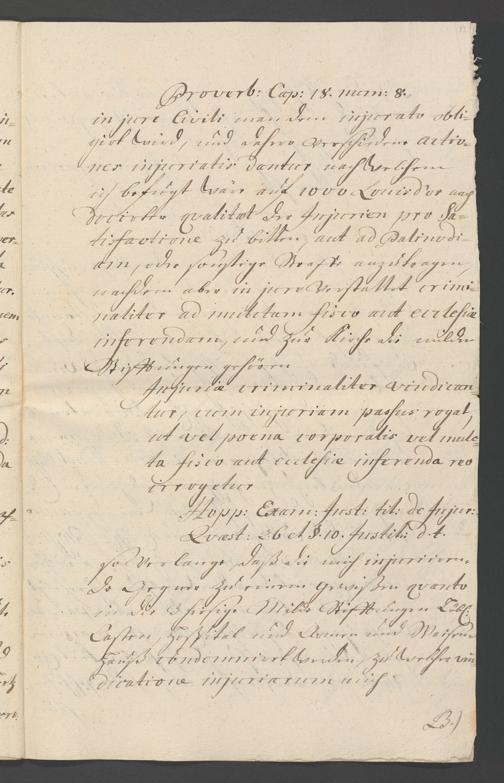 Proverb: Cap: 18. num: 8.
in jure Civili man dem injurato obli-
girt wird, und dahero verschiedene actio-
nes injuriatis dantur nach welchem
ich befügt wäre auf 1000 Louisd'or nach
qualitæt der Injurien pro Sa-
tisfactione zu bitten, aut ad Palinodi-
am, oder sonstige Straffe anzutragen,
nachdem aber in jure verstattet crimi-
naliter ad mulctam fisco aut ecclesiæ
inferendam, und zur Kirche die milden
Stifftungen gehören
Injuriæ criminaliter vindican-
tur, cum injuriam passus rogat,
ut vel poena corporalis vel mulc-
ta fisco aut ecclesiæ inferenda reo
irrogetur
Hopp: Exam: Inst: tit: de Injur:
Quæst: 26 et §. 10. Instit: d. t.
so verlange, daß die mich injurieren-
de Gegner zu einem gewißen quanto
in die 3 hiesige Milde Stifftungen
Casten, Hospital und Armen und Waisen
Hauß condemniret werden, zu welcher vin-
dicatione injuriarum mich
B.)